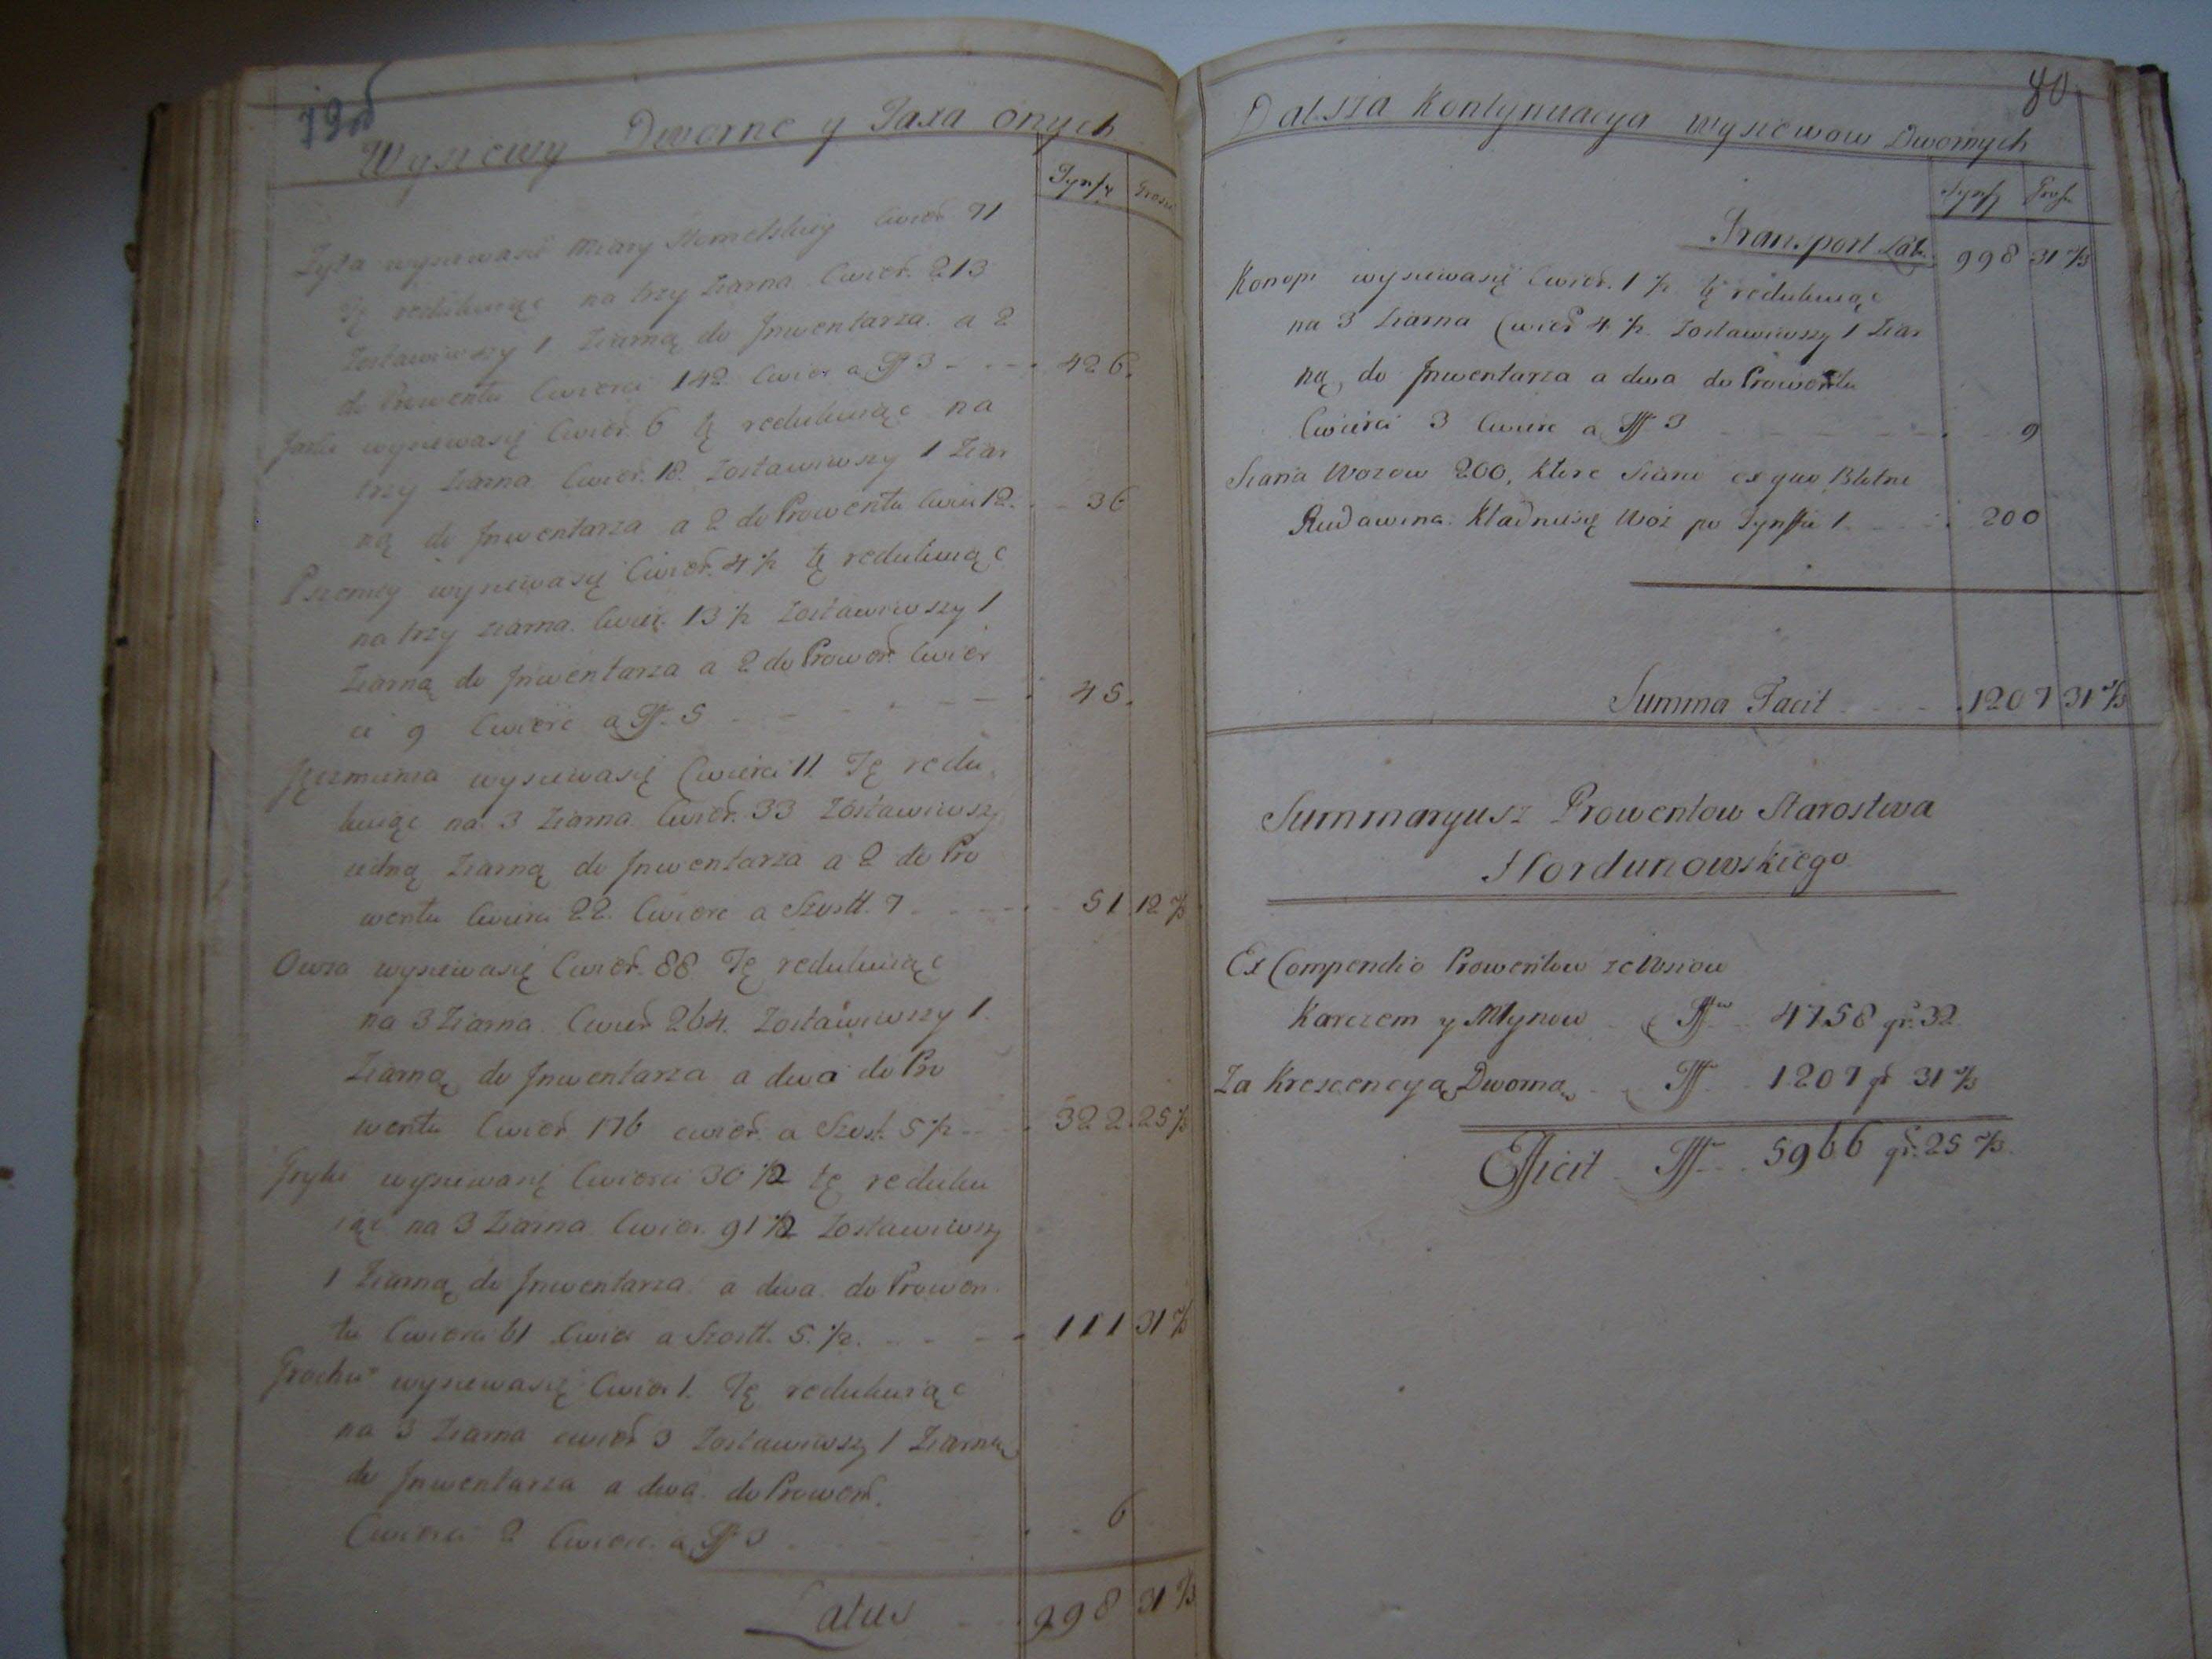 79об
Wysiewy Dworne y Taxa onych
Tynfy Grosze
Zyta wysiewasię Miary Homelskiey Cwier. 71
Tę redukuiąc na trzy Ziarna Cwier. 213
Zostawiwszy 1 Ziarną do Jnwentarza a 2
do Prowentu Cwierci 142 Cwier a Tff 3 - - - - 426.
Jarki wysiewasię Cwier. 6 tę redukuiąc na
trzy Ziarna Cwier. 18. Zostawiwszy 1 Ziar
ną do Jnwentarza a 2 do Prowentu Cwier 12. - - 36
Pszenicy wysiewasię Cwier. 4 1/2 tę redukuiąc
na trzy ziarna Cwier. 13 1/2 Zostawiwszy 1
Ziarną do Jnwentarza a 2 do Prowen Cwier
ci 9 Cwierc a Tff. 5 - - - - 45.
Jęczmienia wysiewasię Cwierci 11. Tę redu
kuiąc na 3 Ziarna Cwier. 33 Zostawiwszy
iedną Ziarną do Jnwentarza a 2 do Pro
wentu Cwierci 22. Cwierc a Szostt. 7 - - - - 51 12 2/3
Owsa wysiewasię Cwier. 88 Tę redukuiąc
na 3 Ziarna Cwier 264. Zostawiwszy 1.
Ziarną do Jnwentarza a dwa do Pro
wentu Cwier 176 cwier. a Szost. 5 1/2 - - - 322. 25 1/3
Gryki wysiewasię Cwierci 30 1/2 tę reduku
iąc na 3 Ziarna Cwier. 91 1/2 Zostawiwszy
1 Ziarną do Jnwentarza a dwa do Prowen
tu Cwierci 61 Cwier a Szostt. 5. 1/2. - - - 111 31 2/3
Grochu wysiewasię Cwier 1. Tę redukuiąc
na 3 Ziarna cwier 3 Zostawiwszy 1 Ziarną
do Jnwentarza a dwa do Prowen.
Cwierci 2 Cwierc. a Tff 3 - - - 6
Latus - - 998 31 2/3
80
Dalsza Kontynuacya wysiewow Dwornych
Tynfy Grosz
Transport Lat. 998 31 2/3
Konopi wysiewasię Cwier. 1 1/2 tę redukuiąc
na 3 Ziarna Cwier 4 1/2. Zostawiwszy 1 Ziar
ną do Jnwentarza a dwa do Prowentu
Cwierci 3 Cwierc a Tff 3 - - - - 9
Siana Wozow 200, ktore Siano ex quo Błotne
Rudawina. Kładniesię Woz po Tynffu 1 - - - 200
Summa Facit - - - 1207 31 2/3
Summaryusz Prowentow Starostwa
Hordunowskiego
Ex Compendio Prowentow ze Wsiow
Karczem y Młynow Tff 4758 gr. 32
Za Krescencyą Dworną Tff 1207 gr 31 2/3
Efficit Tff 5966 gr. 25 2/3.